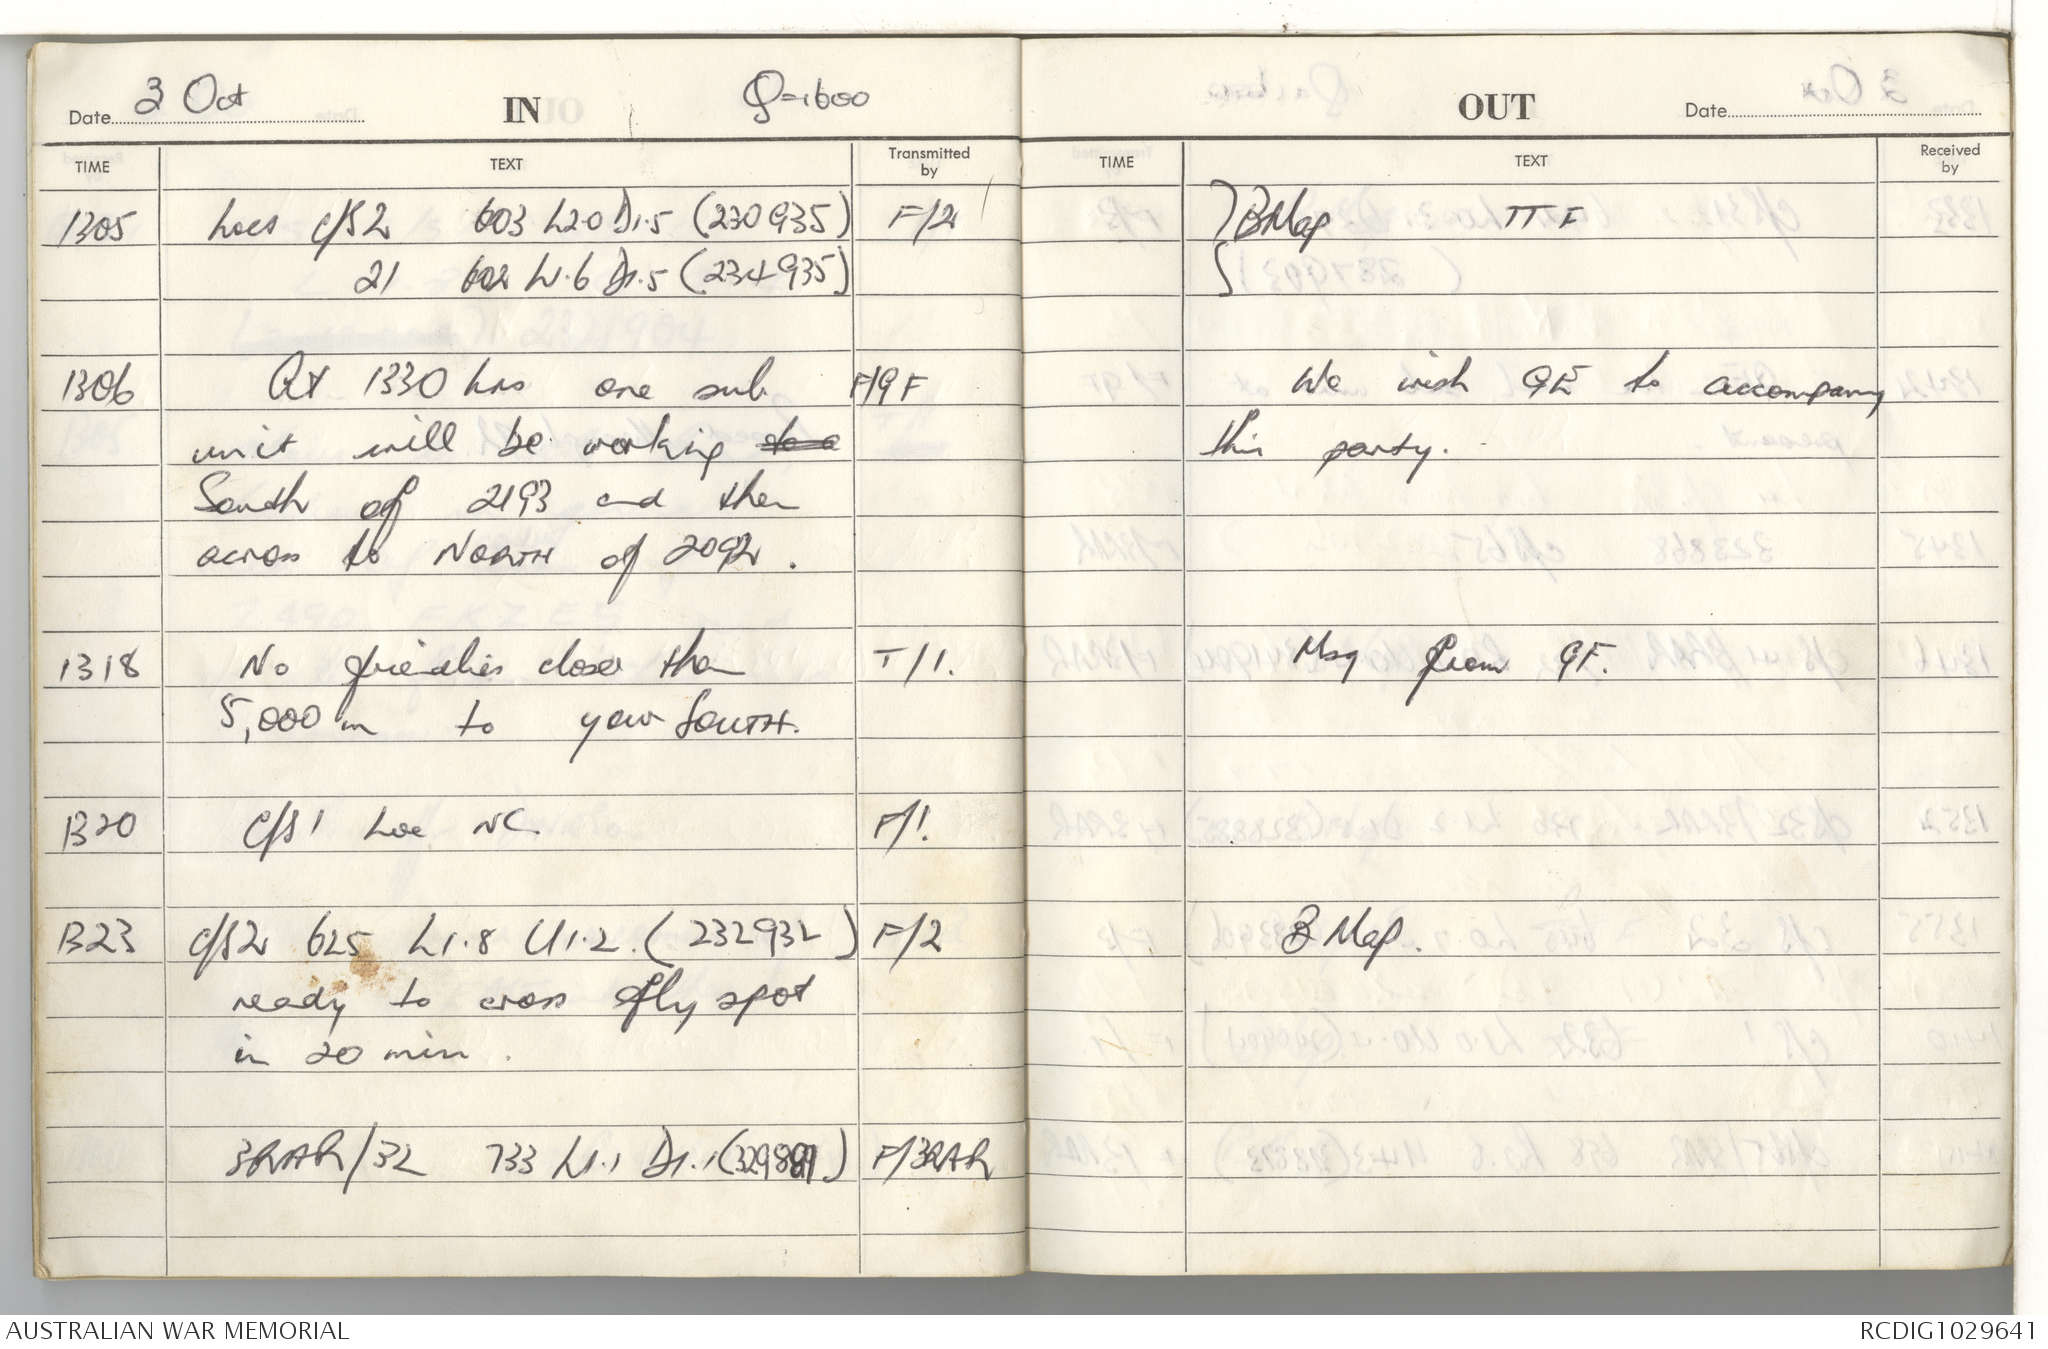 Date 3 Oct IN Q=1600
TIME TEXT Transmitted by
1305 Locs c/s 2 603 L2.0 D1.5 (230935) F/2
21 602 L1.6 D1.5 (234935)
1306 At 1330 hrs one sub F/9F
unit will be working
South of 2193 and then
across to NORTH of 2092.
1318 No friendlies closer than T/1.
5,000 m to your SOUTH.
1320 C/S 1 Loc NC F/1.
1323 C/S 2 625 L1.8 U1.2. (232932) F/2
ready to cross fly spot
in 20 min.
3RAR/32 733 L1.1 D1.1 F/3RAR
OUT Date
TIME TEXT Received by
BMap TTF
We wish 9E to accompany
this party.
Msg from 9F.
B Map.
AUSTRALIAN WAR MEMORIAL RCDIG1029641